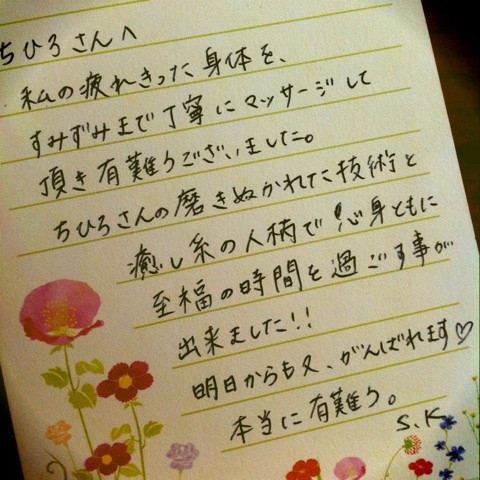 ちひろさんへ
私の疲れきった身体を、
すみずみまで丁寧にマッサージして
頂き有難うございました。
ちひろさんの磨きぬかれた技術と
癒し系の人柄で心身ともに
至福の時間を過ごす事が
出来ました!!
明日からも又、がんばれます♡
本当に有難う。
S.K